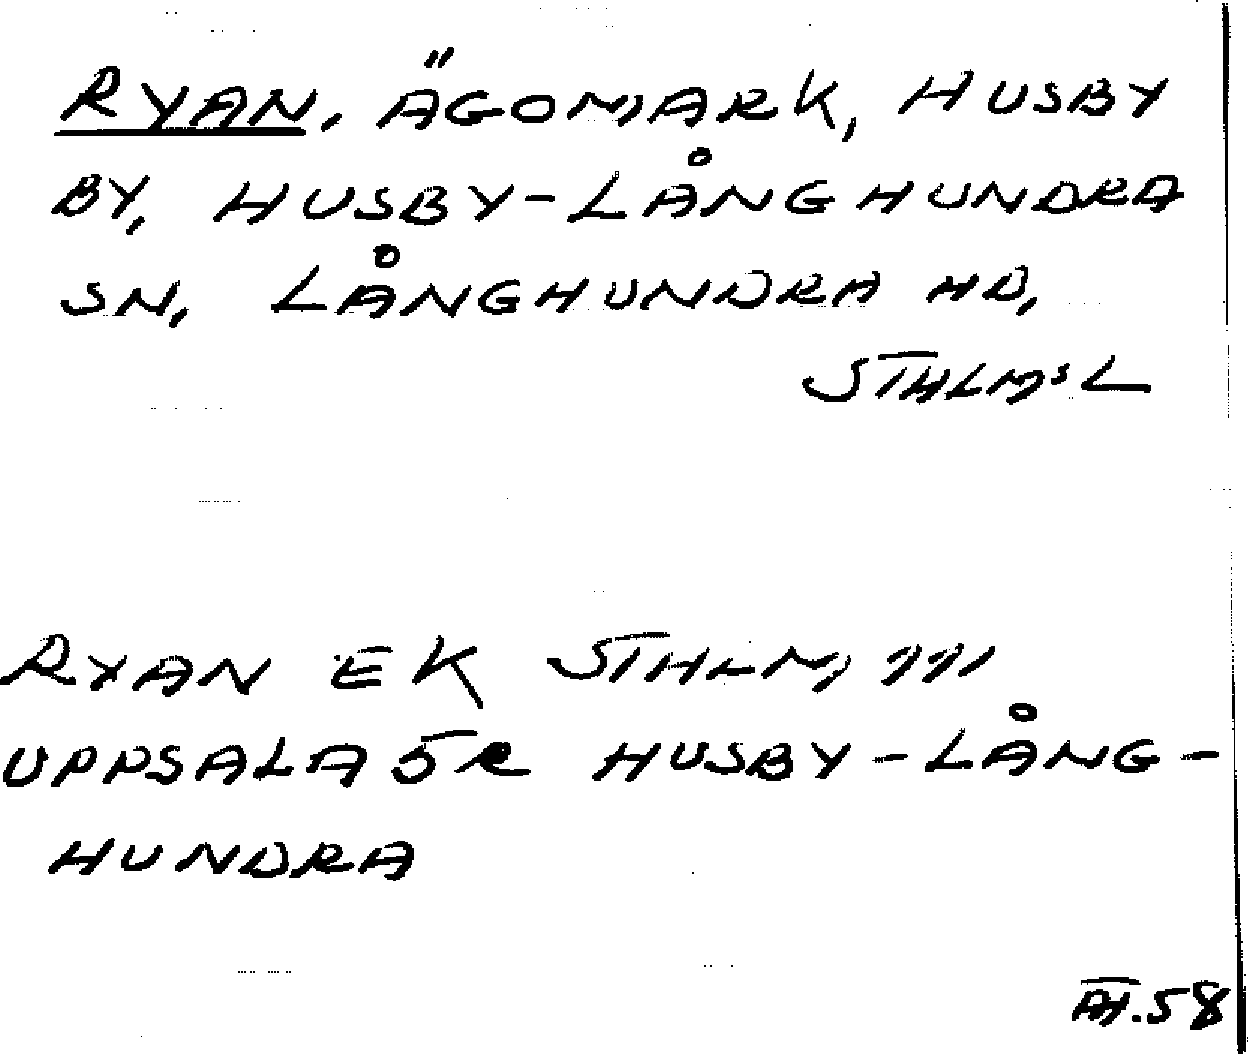 RYAN, ÄGOMARK, HUSBY
BY, HUSBY-LÅNGHUNDRA
SN, LÅNGHUNDRA HD,
STHLMS L
RYAN EK STHLM, 111
UPPSALA 5R HUSBY-LÅNG-
HUNDRA
58